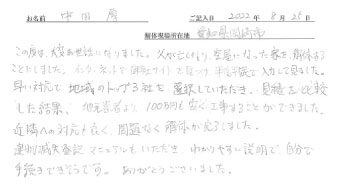 お名前 中田 ご記入日 2022年 8月 28日
解体現場所在地 愛知県岡崎市
この度は、大変お世話になりました。父が亡くなり、空屋になった家を解体する
ことにしました。インターネットで解体サイトを見つけ、半信半疑で入力して見ました。
早い対応で地域のトップ3社を選択していただき、見積を比較
した結果、地元業者より100万円も安く工事することができました。
近隣への対応も良く、問題なく解体が完了しました。
建物滅失登記マニュアルもいただき、わかりやすい説明で、自分で
手続きできそうです。ありがとうございました。